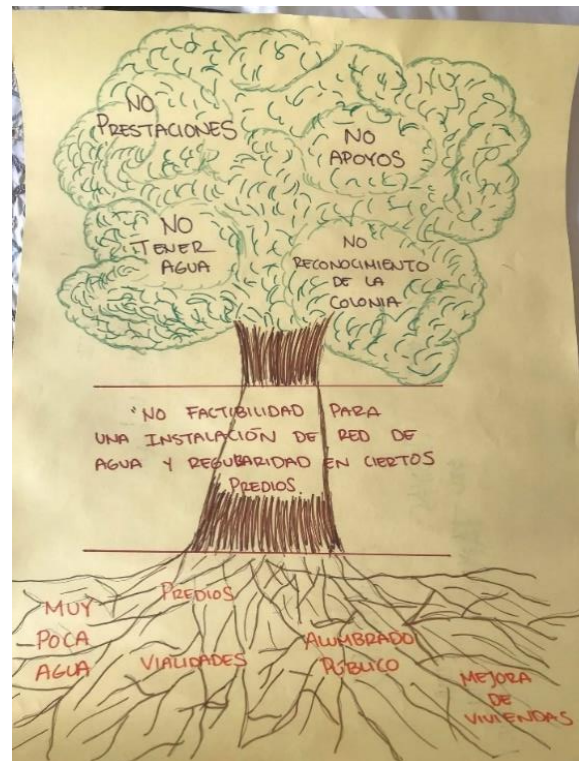 NO
PRESTACIONES
NO
APOYOS
NO
TENER
AGUA
NO
RECONOCIMIENTO
DE LA
COLONIA
"NO FACTIBILIDAD PARA
UNA INSTALACIÓN DE RED DE
AGUA Y REGUBARIDAD EN CIERTOS
PREDIOS.
MUY
POCA
AGUA
PREDIOS
VIALIDADES
ALUMBRADO
PÚBLICO
MEJORA
DE
VIVIENDAS